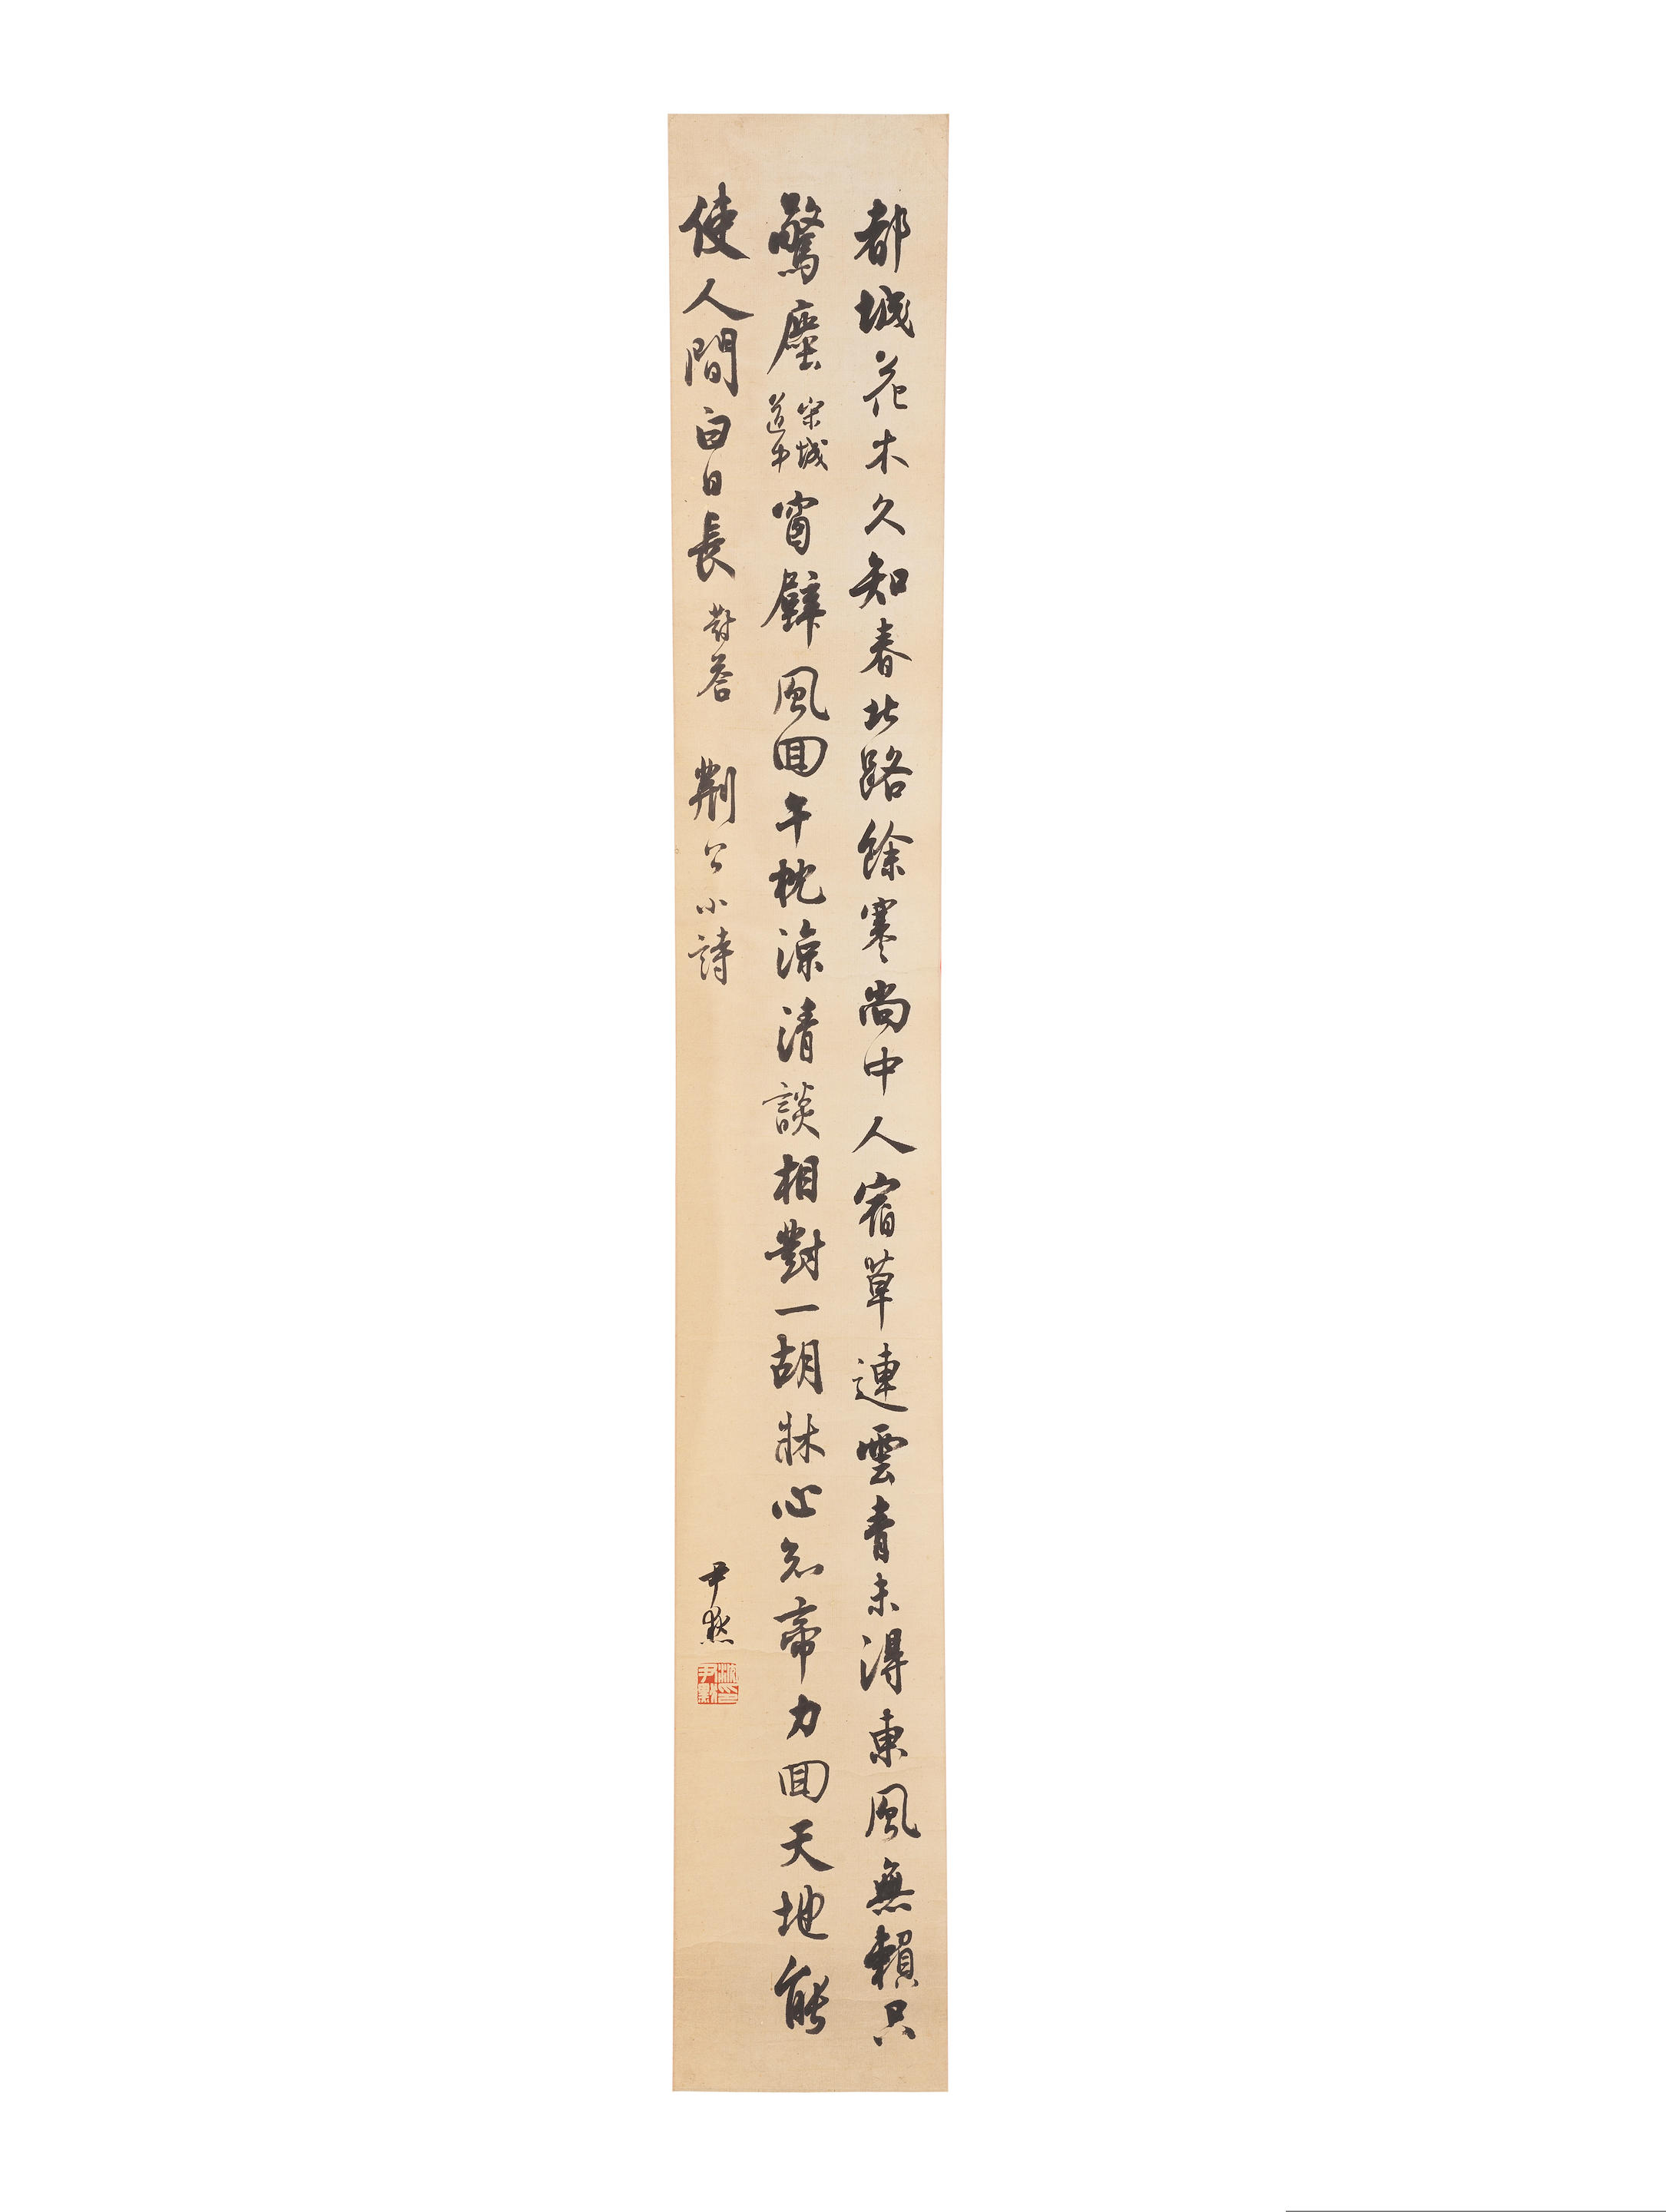 都城花木久知春北路餘寒尚中人宿草連雲青未得東風無賴只
驚塵
宋城
道中
窗壁風囬午枕涼清談相對一胡牀心知帝力囬天地能
使人間白日長 對荅 荊公小詩
尹默